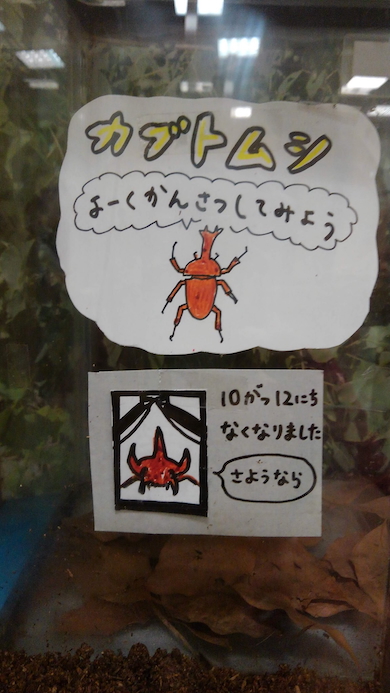 カブトムシ
よーくかんさつしてみよう
10がつ12にち
なくなりました
さようなら